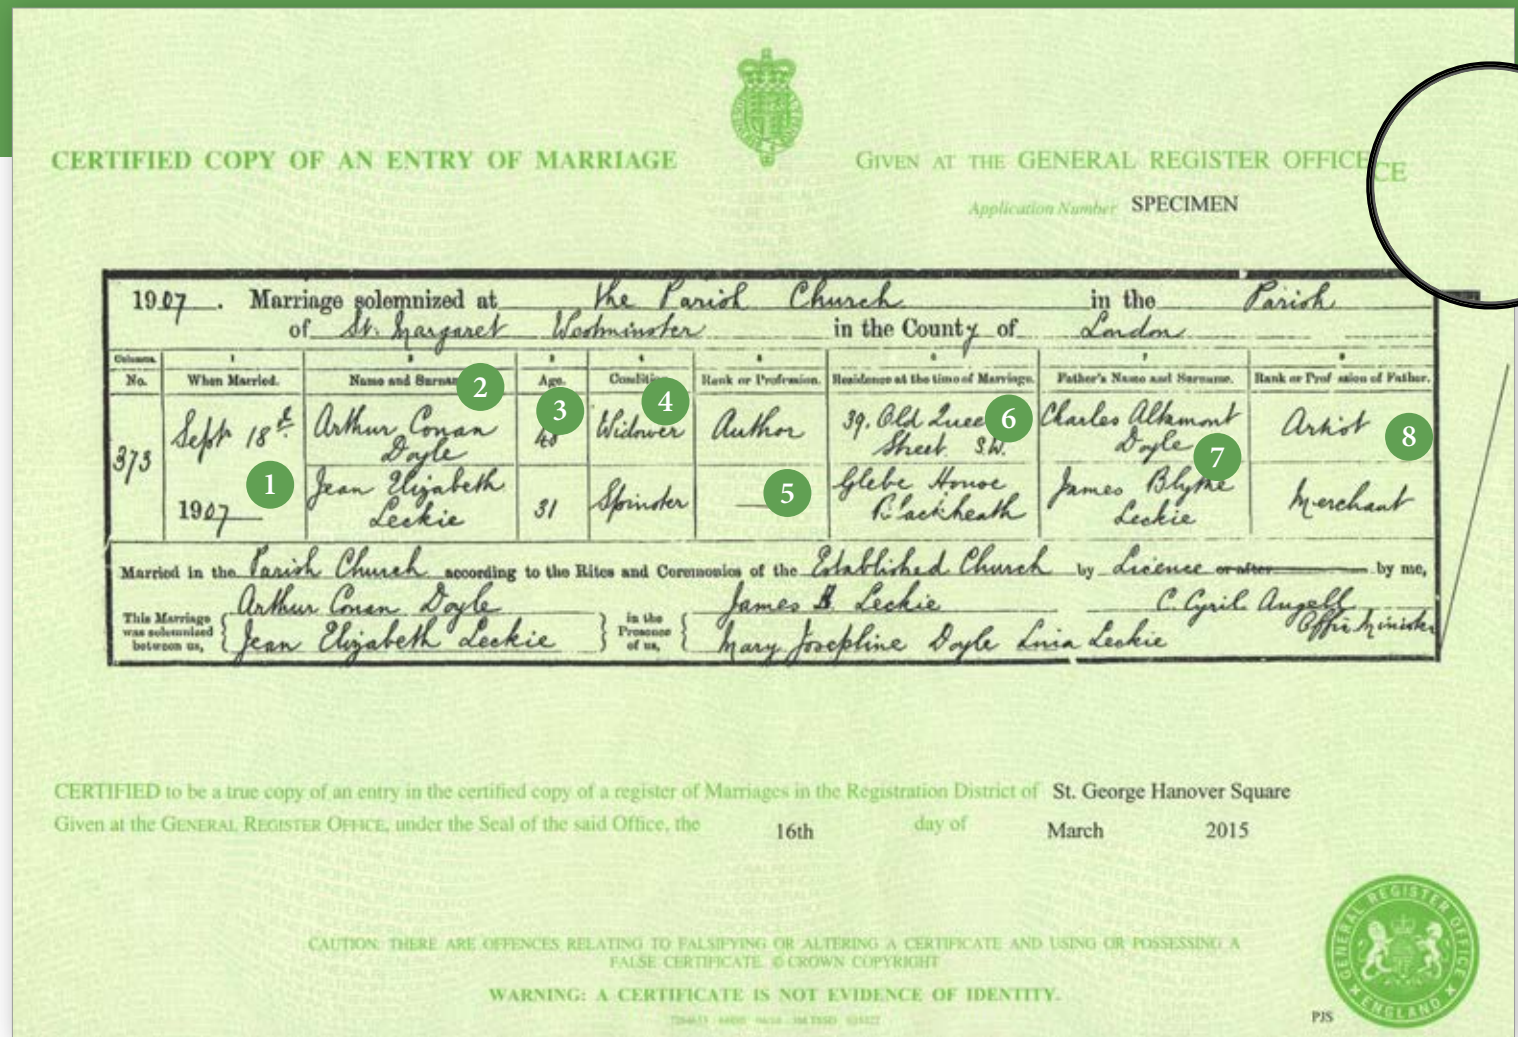 CERTIFIED COPY OF AN ENTRY OF MARRIAGE
GIVEN AT THE GENERAL REGISTER OFFICE
CE
Application Number SPECIMEN
1907. Marriage solemnized at the Parish Church in the Parish
of St. Margaret Westminster in the County of London
Columns. 1 2 3 4 5 6 7 8
No. When Married. Name and Age. Rank or Profession. Residence at the time of Marriage. Father's Name and Surname. Rank or Profession of Father.
2
3
4
373 Sept 18th Arthur Conan Doyle 48 Widower Author 39. Old Street S.W. Charles Altamont Doyle Artist
6
7
8
1
5
1907 Jean Elizabeth Leckie 31 Spinster — Glebe House Blackheath James Blythe Leckie Merchant
Married in the Parish Church according to the Rites and Ceremonies of the Established Church by Licence or after by me,
This Marriage was solemnized between us, { Arthur Conan Doyle } in the Presence of us, { James B. Leckie C. Cyril Angell
Jean Elizabeth Leckie Mary Josephine Doyle Leckie Minister
CERTIFIED to be a true copy of an entry in the certified copy of a register of Marriages in the Registration District of St. George Hanover Square
Given at the GENERAL REGISTER OFFICE, under the Seal of the said Office, the 16th day of March 2015
CAUTION: THERE ARE OFFENCES RELATING TO FALSIFYING OR ALTERING A CERTIFICATE AND USING OR POSSESSING A
FALSE CERTIFICATE. © CROWN COPYRIGHT
WARNING: A CERTIFICATE IS NOT EVIDENCE OF IDENTITY.
GENERAL REGISTER OFFICE
ENGLAND
PJS